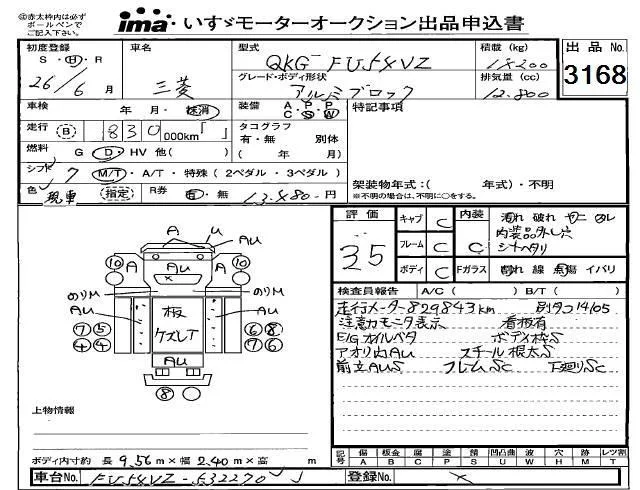 ◎赤太枠内は必ず
ボールペンで
ご記入下さい。
ima いすゞモーターオークション出品申込書
初度登録 車名 型式 積載 (kg) 出品 No.
S・H・R QKG-FU54VZ 18200
26/6 月 三菱 グレード・ボディ形状 排気量 (cc) 3168
アルミブロック 12.800
車検 年・月・抹消 装備 A・P・P C S W 特記事項
走行 B 830 000km「 」 タコグラフ
有・無 別体
燃料 G・D・HV 他( ) ( 年 月)
シフト 7 M/T・A/T・特殊(2ペダル・3ペダル)
架装物年式:( 年式)・不明
色 現車 指定 R券 有・無 13.480-円 ※不明の場合は、不明に○をする。
評価 キャブ C 内装 汚れ 破れ
内装品外し穴
35 フレーム C C シートヘタリ
ボディ C Fガラス 割れ 線 点傷 イバリ
検査員報告 A/C( ) B/T( )
走行メーター829843km 別タコ14105
注意力モニタ表示 看板有
E/Gオイルベタ ボディ枠S
アオリ内AU スチール根太S
前立AUS フレームSC 下廻りSC
A U AU
10 A AU A 10
のりM のりM
AU 板 AU
7 5 ケズレT 6 8
4 4 7 6
AU
8
上物情報
ボディ内寸約 長 9.56 m×幅 2.40 m×高 m
記号 傷 A 板金 B 腐 C 塗 P 錆 S 凹凸曲 U 波 W 穴 H 跡 M レツ割 T
車台No. FU54VZ-532270 登録No. ×